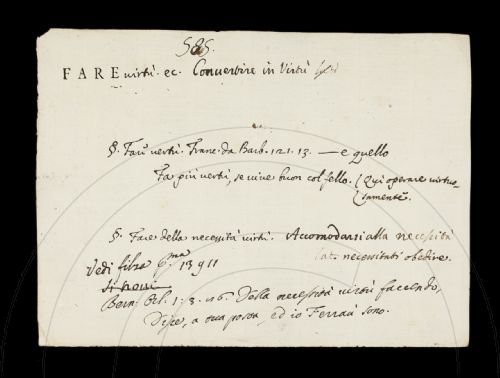 585.
FARE virtù. ec. Convertire in Virtù
§. Farᵉ vertù. Franc. da Barb. 121. 13. — e quello
Fa più vertù, se vive buon col fello. (Qui operare virtuo-
samentᵉ.
§. Fare della necessità virtù. Accomodarsi alla necessità
Lat. necessitati obedire.
Vedi filza 6ᵐᵃ 13 911
Bern. Orl. 1. 3. 76. Della necessità virtù facendo,
Disse, a sua posta, ed io Ferraù sono.